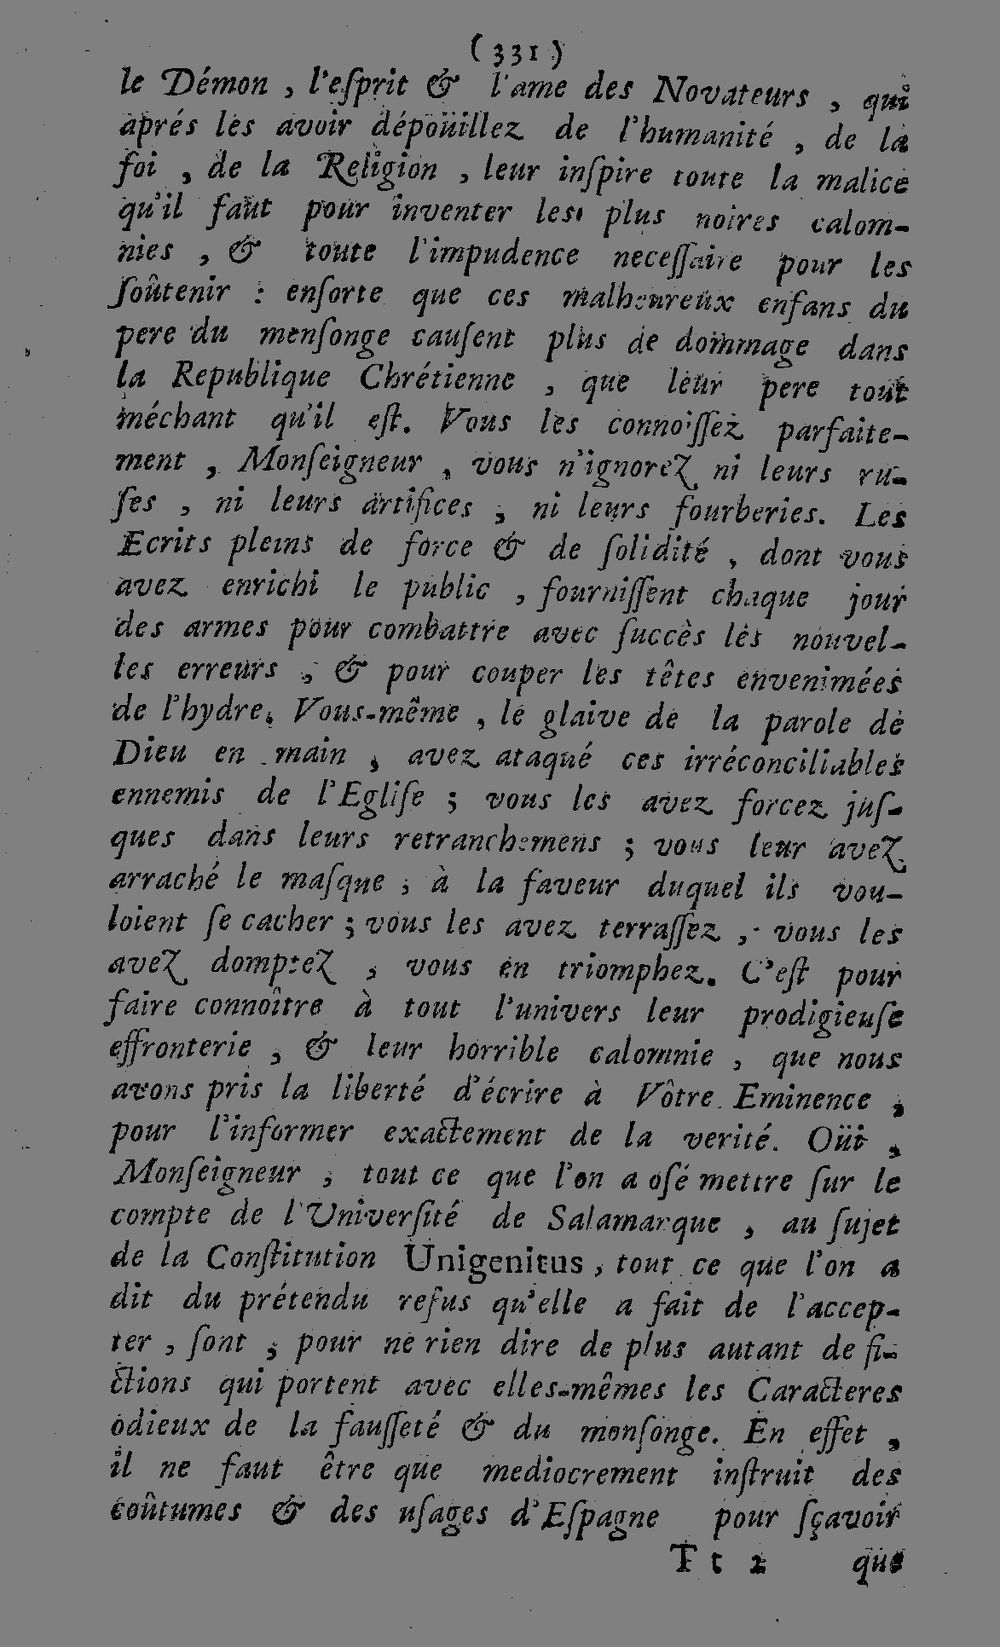 (331)
le Démon, l'eſprit & l'ame des Novateurs, qui
aprés les avoir dépoüillez de l'humanité, de la
foi, de la Religion, leur inſpire toute la malice
qu'il faut pour inventer les plus noires calom-
nies, & toute l'impudence neceſſaire pour les
ſoûtenir : enſorte que ces malheureux enfans du
pere du menſonge cauſent plus de dommage dans
la Republique Chrétienne, que leur pere tout
méchant qu'il eſt. Vous les connoiſſez parfaite-
ment, Monſeigneur, vous n'ignorez ni leurs ru-
ſes, ni leurs artifices, ni leurs fourberies. Les
Ecrits pleins de force & de ſolidité, dont vous
avez enrichi le public, fourniſſent chaque jour
des armes pour combattre avec ſuccès les nouvel-
les erreurs, & pour couper les têtes envenimées
de l'hydre. Vous-même, le glaive de la parole de
Dieu en main, avez ataqué ces irréconciliables
ennemis de l'Egliſe ; vous les avez forcez juſ-
ques dans leurs retranchemens ; vous leur avez
arraché le maſque, à la faveur duquel ils vou-
loient ſe cacher ; vous les avez terraſſez, vous les
avez domptez, vous en triomphez. C'eſt pour
faire connoître à tout l'univers leur prodigieuſe
effronterie, & leur horrible calomnie, que nous
avons pris la liberté d'écrire à Vôtre Eminence,
pour l'informer exactement de la verité. Oüi,
Monſeigneur, tout ce que l'on a oſé mettre ſur le
compte de l'Univerſité de Salamanque, au ſujet
de la Conſtitution Unigenitus, tout ce que l'on a
dit du prétendu refus qu'elle a fait de l'accep-
ter, ſont, pour ne rien dire de plus autant de fi-
ctions qui portent avec elles-mêmes les Caracteres
odieux de la fauſſeté & du monſonge. En effet,
il ne faut être que mediocrement inſtruit des
coûtumes & des uſages d'Eſpagne pour ſçavoir
Tt 2 que